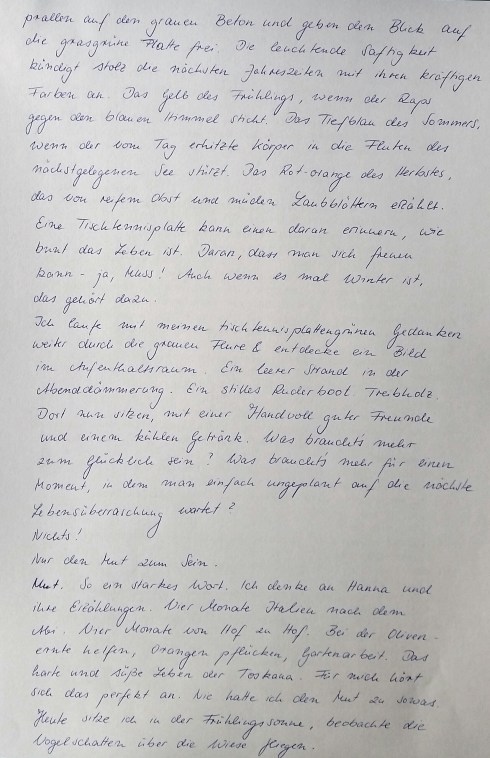 prallen auf den grauen Beton und geben den Blick auf
die grasgrüne Platte frei. Die leuchtende Saftigkeit
kündigt stolz die nächsten Jahreszeiten mit ihren kräftigen
Farben an. Das Gelb des Frühlings, wenn der Raps
gegen den blauen Himmel sticht. Das Tiefblau des Sommers,
wenn der vom Tag erhitzte Körper in die Fluten des
nächstgelegenen See stürzt. Das Rot-orange des Herbstes,
das von reifem Obst und müden Laubblättern erzählt.
Eine Tischtennisplatte kann einen daran erinnern, wie
bunt das Leben ist. Daran, dass man sich freuen
kann - ja, muss! Auch wenn es mal Winter ist,
das gehört dazu.
Ich laufe mit meinen tischtennisplattengrünen Gedanken
weiter durch die grauen Flure & entdecke ein Bild
im Aufenthaltsraum. Ein leerer Strand in der
Abenddämmerung. Ein stilles Ruderboot. Treibholz.
Dort nun sitzen, mit einer Handvoll guter Freunde
und einem kühlen Getränk. Was braucht's mehr
zum glücklich sein? Was braucht's mehr für einen
Moment, in dem man einfach ungeplant auf die nächste
Lebensüberraschung wartet?
Nichts!
Nur den Mut zum Sein.
Mut. So ein starkes Wort. Ich denke an Hanna und
ihre Erzählungen. Vier Monate Italien nach dem
Abi. Vier Monate von Hof zu Hof. Bei der Oliven-
ernte helfen, Orangen pflücken, Gartenarbeit. Das
harte und süße Leben der Toskana. Für mich hört
sich das perfekt an. Nie hatte ich den Mut zu sowas.
Heute sitze ich in der Frühlingssonne, beobachte die
Vogelschatten über die Wiese fliegen.